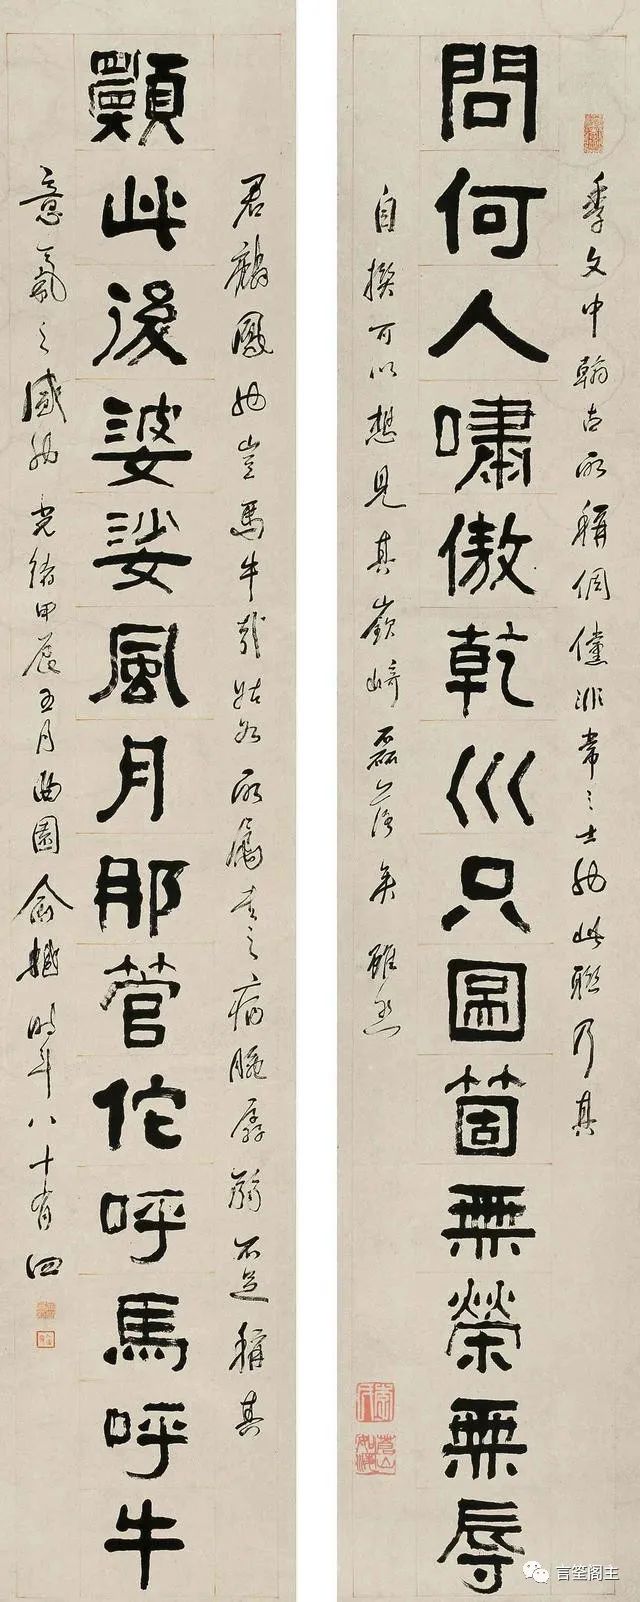 季文中翰古所稱倜儻非常之士也此聯乃其
問何人嘯傲乾巛只圖箇無榮無辱
自撰可以想見其嶔崎磊落矣雖然
君鶴鳳也豈馬牛哉姑如所屬書之病腕孱弱不足稱其
願此後婆娑風月那管佗呼馬呼牛
意氣之盛也光緒甲辰五月曲園俞樾時年八十有四
言筌阁主